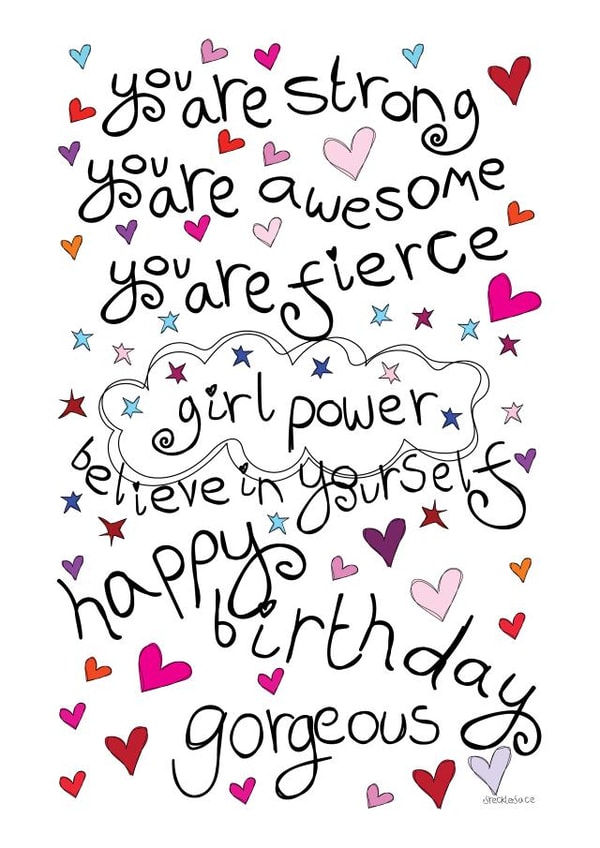 you are strong
you are awesome
you are fierce
girl power
believe in yourself
happy
birthday
gorgeous
freckleface